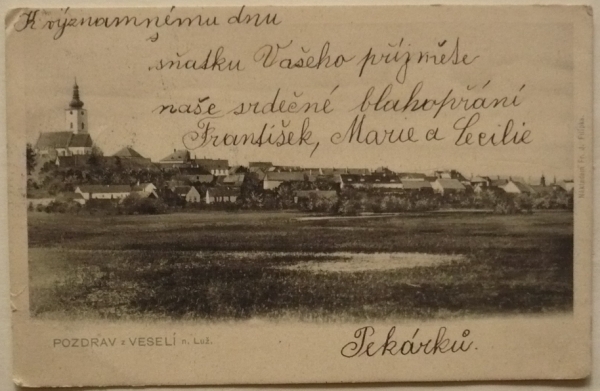 K významnému dnu
sňatku Vašeho přijměte
naše srdečné blahopřání
František, Marie a Cecilie
Pekárků.
POZDRAV z VESELÍ n. Luž.